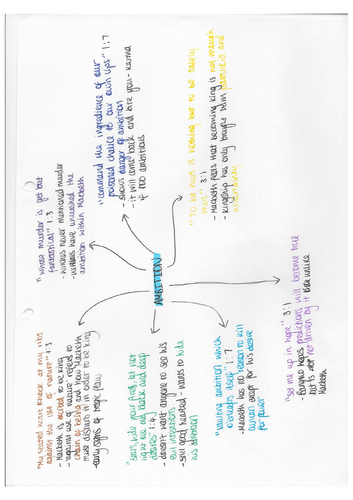 "My seated heart knock at my ribs
against the use of nature" 1:3
- Macbeth is not meant to be king
- against use of nature refers to
chain of being and how Macbeth
must disrupt it in order to be king
- early signs of tragic flaw
"whose murder is yet but
" 1:3
- witches never mentioned murder
- witches have unleashed the
ambition within Macbeth
"commend the ingredience of our
poisoned chalice to our own lips" 1:7
- shows danger of ambition
- it will come back and bite you - karma
if too ambitious
AMBITION
"stars, hide your fires, let not
light see my black and deep
desires" 1:4
- doesn't want anyone to see his
evil intentions
- still good hearted - wants to hide
his ambition
"vaulting ambition which
o'erleaps itself" 1:7
- Macbeth has no reason to kill
Duncan except for his desire
for power
"To be thus is nothing but to be safely
thus" 3:1
- Macbeth feels that becoming king is not enough
- kingship has only bought him paranoia and
"set me up in hope" 3:1
- Banquo hopes predictions will become true
but is not driven by it like unlike
Macbeth